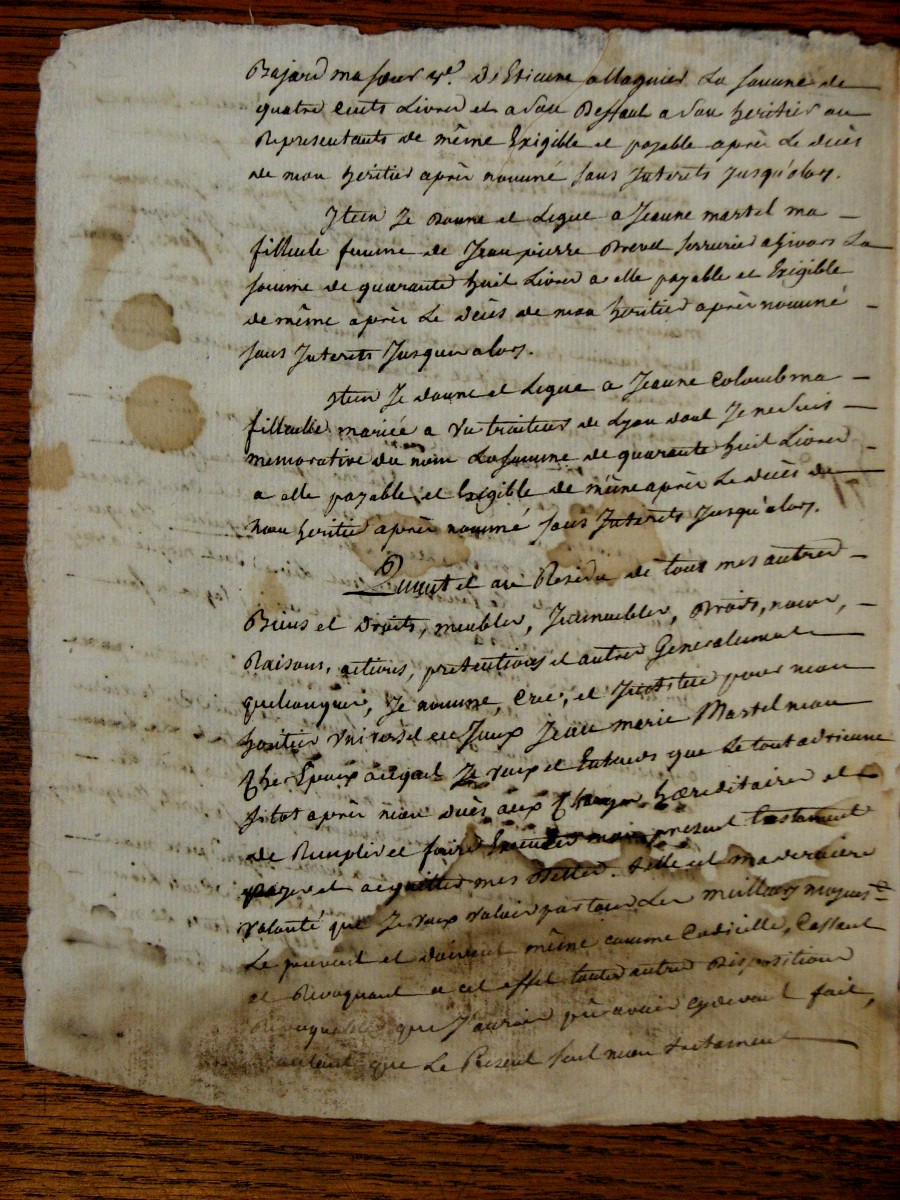 Bajard ma sœur vᵉ. D'Etienne allaguier La somme de
quatre Cents Livres et a Son Deffaut a Son heritier ou
Representants de même Exigible et payable après Le decès
de mon heritier après nommé sans Interets Jusqu'alors.
Item Je Donne et Legue a Jeanne martel ma
fillieule femme de Jean pierre Brevet serrurier a givors La
somme de quarante huit Livres a elle payable et Exigible
de même après Le Décès de mon heritier après nommé
sans Interets Jusqu'alors.
Item Je donne et Legue a Jeanne Colomb ma
fillieulle mariée a Un traiteur de Lyon dont Je ne suis
memorative du nom La somme de quarante huit Livres
a elle payable et Exigible de même après Le decès de
mon heritier après nommé sans Interets Jusqu'alors.
Quant et au Residu de tous mes autres
Biens et Droits, meubles, Immeubles, Droits, noms,
Raisons, actions, pretentions et autres Generalement
quelconques, Je nomme, Cree, et Institue pour mon
heritier Universel en Jeux Jean marie Martel mon
Cher Epoux auquel Je veux et Entends que Le tout advienne
sitot après mon decès aux Charges hereditaires et
de Remplir et faire Executer mon present testament
payer et acquitter mes Dettes. telle est ma derniere
volonté que Je veux valoir par tous Les meilleurs moyens
Le peuvent et doivent même comme Codicille, Cassant
et Revoquant a cet effet toutes autres Dispositions
que J'aurois pû avoir cydevant fait,
que Le Present seul mon testament